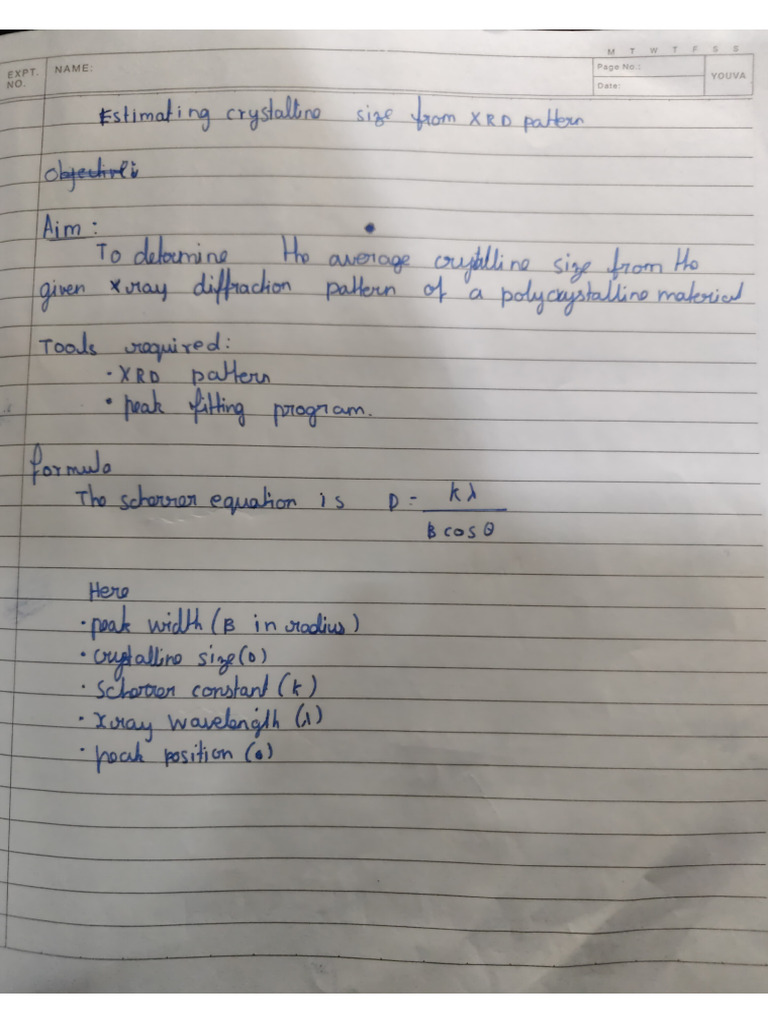 M T W T F S S
EXPT. NO.
NAME:
Page No.:
Date:
YOUVA
Estimating crystalline size from XRD pattern
Objective:
Aim:
To determine the average crystalline size from the
given xray diffraction pattern of a polycrystalline material
Tools required:
· XRD pattern
· peak fitting program.
formula
The scherrer equation is D = kλ
B cos θ
Here
· peak width (B in radius)
· crystalline size (D)
· scherrer constant (k)
· xray wavelength (λ)
· peak position (θ)